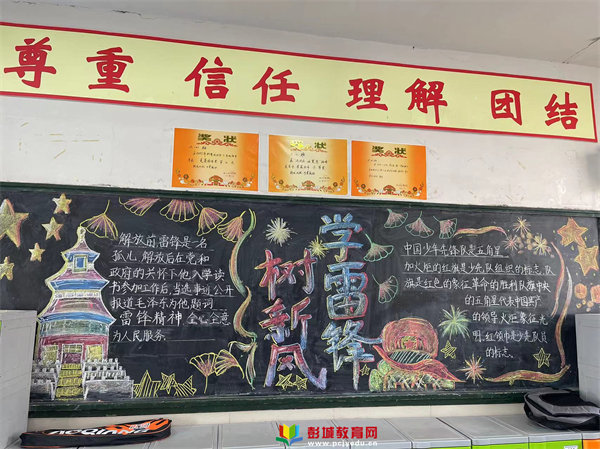 尊重 信任 理解 团结
奖状
奖状
奖状
解放前雷锋是一名
孤儿,解放后在党和
政府的关怀下他入学读
书参加工作后,当选事迹公开
报道毛泽东为他题词
雷锋精神 全心全意
为人民服务
学雷锋
树新风
中国少年先锋队是五角星
加火炬的红旗是少先队组织的标志,队
旗是红色的象征革命的胜利队旗中央
的五角星代表中国共产
的领导火炬象征光
明,红领巾是少先队员
的标志.
彭城教育网
www.pcjyedu.cn